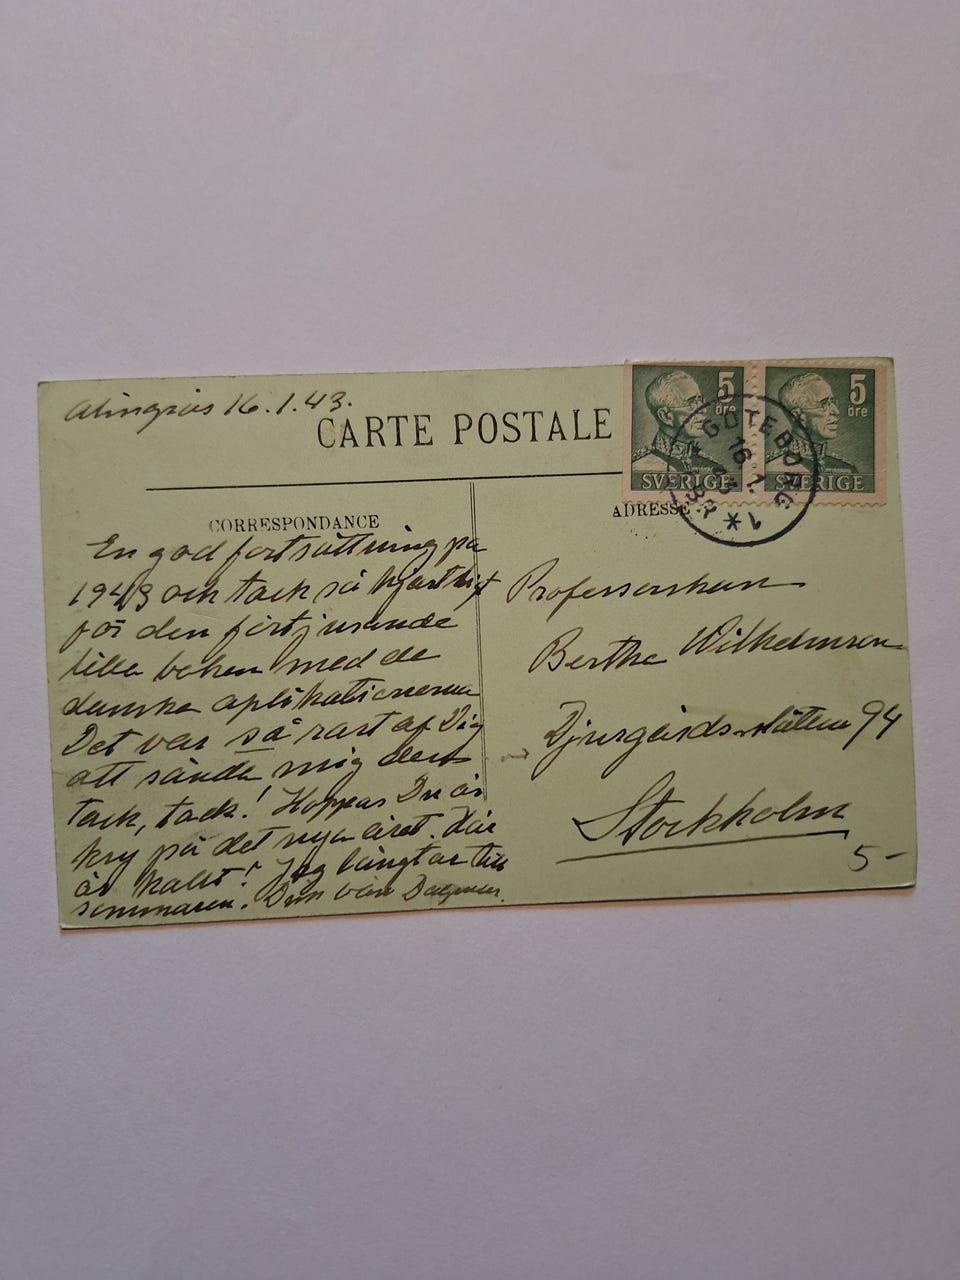 Alingsås 16.1.43.
CARTE POSTALE
5
öre
SVERIGE
5
öre
SVERIGE
GÖTEBORG
16.1.
43
1
CORRESPONDANCE
ADRESSE
En god fortsättning på
1943 och tack så hjärtligt
för den förtjusande
lilla boken med de
danska aplikationerna
Det var så rart af Dig
att sända mig den
tack, tack! Hoppas Du är
kry på det nya året. Här
är kallt! Jag längtar till
sommaren. Din vän Dagmar.
Professorskan
Bertha Wilhelmson
Djurgårdsslätten 94
Stockholm
5-